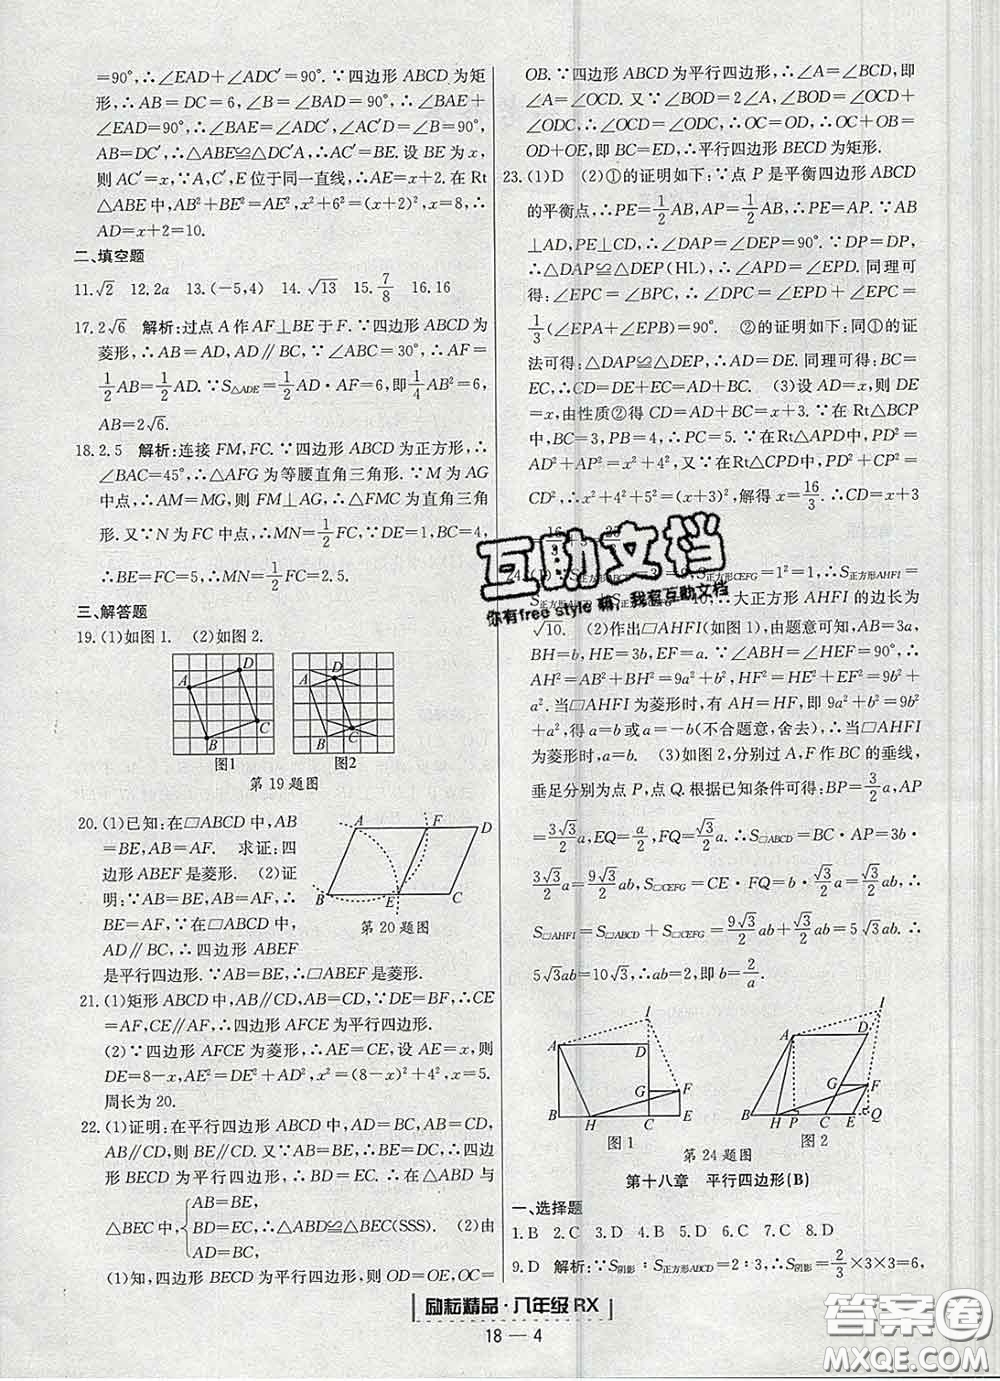 =90°,∴∠EAD+∠ADC′=90°.∵四边形ABCD为矩
形,∴AB=DC=6,∠B=∠BAD=90°,∴∠BAE+
∠EAD=90°,∴∠BAE=∠ADC′,∠AC′D=∠B=90°,
AB=DC′,∴△ABE≌△DC′A,∴AC′=BE.设BE为x,
则AC′=x,∵A,C′,E位于同一直线,∴AE=x+2.在Rt
△ABE中,AB²+BE²=AE²,x²+6²=(x+2)²,x=8,∴
AD=x+2=10.
二、填空题
11.√2 12.2a 13.(-5,4) 14.√13 15.7/8 16.16
17.2√6 解析:过点A作AF⊥BE于F.∵四边形ABCD为
菱形,∴AB=AD,AD∥BC,∵∠ABC=30°,∴AF=
1/2AB=1/2AD.∵S△ADE=1/2AD·AF=6,即1/4AB²=6,
AB=2√6.
18.2.5 解析:连接FM,FC.∵四边形ABCD为正方形,∴
∠BAC=45°,∴△AFG为等腰直角三角形.∵M为AG
中点,∴AM=MG,则FM⊥AG,∴△FMC为直角三角
形.又∵N为FC中点,∴MN=1/2FC,∵DE=1,BC=4,
∴BE=FC=5,∴MN=1/2FC=2.5.
三、解答题
19.(1)如图1. (2)如图2.
A D B C
A D B C
图1 图2
第19题图
20.(1)已知:在▱ABCD中,AB
=BE,AB=AF. 求证:四
边形ABEF是菱形. (2)证
明:∵AB=BE,AB=AF,∴
BE=AF,∵在▱ABCD中,
AD∥BC,∴四边形ABEF
是平行四边形.∵AB=BE,∴▱ABEF是菱形.
A F D
B E C
第20题图
21.(1)矩形ABCD中,AB∥CD,AB=CD,∵DE=BF,∴CE
=AF,CE∥AF,∴四边形AFCE为平行四边形.
(2)∵四边形AFCE为菱形,∴AE=CE,设AE=x,则
DE=8-x,AE²=DE²+AD²,x²=(8-x)²+4²,x=5.
周长为20.
22.(1)证明:在平行四边形ABCD中,AD=BC,AB=CD,
AB∥CD,则BE∥CD.又∵AB=BE,∴BE=DC,∴四边
形BECD为平行四边形,∴BD=EC,∴在△ABD与
△BEC中,{AB=BE,
BD=EC,∴△ABD≌△BEC(SSS). (2)由
AD=BC,
(1)知,四边形BECD为平行四边形,则OD=OE,OC=
OB.∵四边形ABCD为平行四边形,∴∠A=∠BCD,即
∠A=∠OCD.又∵∠BOD=2∠A,∠BOD=∠OCD+
∠ODC,∴∠OCD=∠ODC,∴OC=OD,∴OC+OB=
OD+OE,即BC=ED,∴平行四边形BECD为矩形.
23.(1)D (2)①的证明如下:∵点P是平衡四边形ABCD
的平衡点,∴PE=1/2AB,AP=1/2AB,∴PE=AP.∵AB
⊥AD,PE⊥CD,∴∠DAP=∠DEP=90°.∵DP=DP,
∴△DAP≌△DEP(HL),∴∠APD=∠EPD.同理可
得:∠EPC=∠BPC,∴∠DPC=∠EPD+∠EPC=
1/3(∠EPA+∠EPB)=90°. ②的证明如下:同①的证
法可得:△DAP≌△DEP,∴AD=DE.同理可得:BC=
EC,∴CD=DE+EC=AD+BC. (3)设AD=x,则DE
=x,由性质②得CD=AD+BC=x+3.∵在Rt△BCP
中,BC=3,PB=4,∴PC=5.∵在Rt△APD中,PD²=
AD²+AP²=x²+4²,又∵在Rt△CPD中,PD²+PC²=
CD²,∴x²+4²+5²=(x+3)²,解得x=16/3.∴CD=x+3
=1²=1,∴S正方形AHFI
∴大正方形AHFI的边长为
√10. (2)作出▱AHFI(如图1),由题意可知:AB=3a,
BH=b,HE=3a,EF=a.∵∠ABH=∠HEF=90°,∴
AH²=AB²+BH²=9a²+b²,HF²=HE²+EF²=9a²+
a².∵当▱AHFI为菱形时,有AH=HF,即9a²+b²=9b²
+a²,得a=b或a=-b(不合题意,舍去),∴当▱AHFI
为菱形时,a=b. (3)如图2,分别过A,F作BC的垂线,
垂足分别为点P,点Q.根据已知条件可得:BP=3/2a,AP
=3√3/2a,EQ=a/2,FQ=√3/2a.∴S▱ABCD=BC·AP=3b·
3√3/2a=9√3/2ab,S▱CEFG=CE·FQ=b·√3/2a=√3/2ab,∴
S▱AHFI=S▱ABCD+S▱CEFG=9√3/2ab+√3/2ab=5√3ab.∴
5√3ab=10√3,∴ab=2,即b=2/a.
A D I G F B H C E
A D I G F B H P C E Q
图1 图2
第24题图
第十八章 平行四边形(B)
一、选择题
1.B 2.C 3.D 4.B 5.C 6.D 7.C 8.D
9.D 解析:∵S阴影∶S正方形ABCD=2∶3,∴S阴影=2/3×3×3=6,
励耘精品·八年级RX
18—4
互助文档
你有free style 萌，我有互助文档
答案圈
MXQE.COM